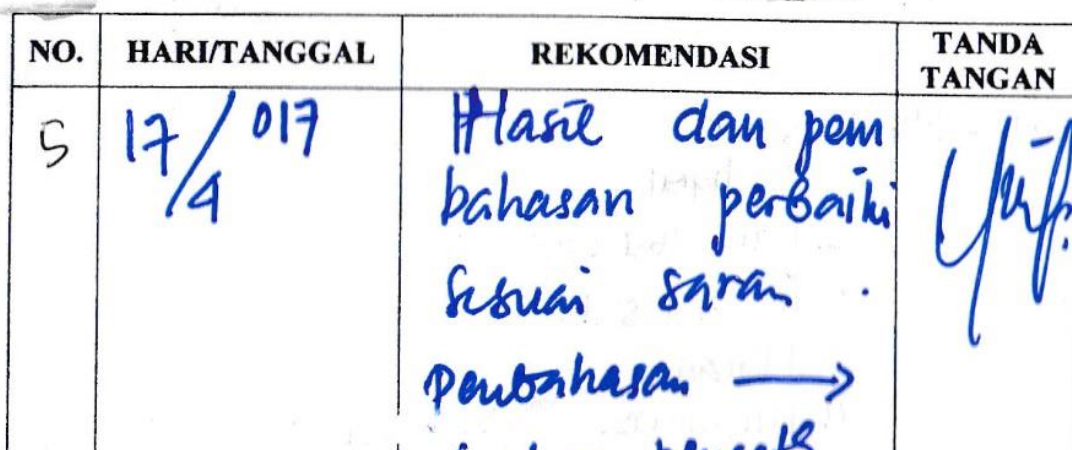 NO. HARI/TANGGAL REKOMENDASI TANDA TANGAN
5 17/4 017 Hasil dan pem
bahasan perbaiki
sesuai saran .
Pembahasan →